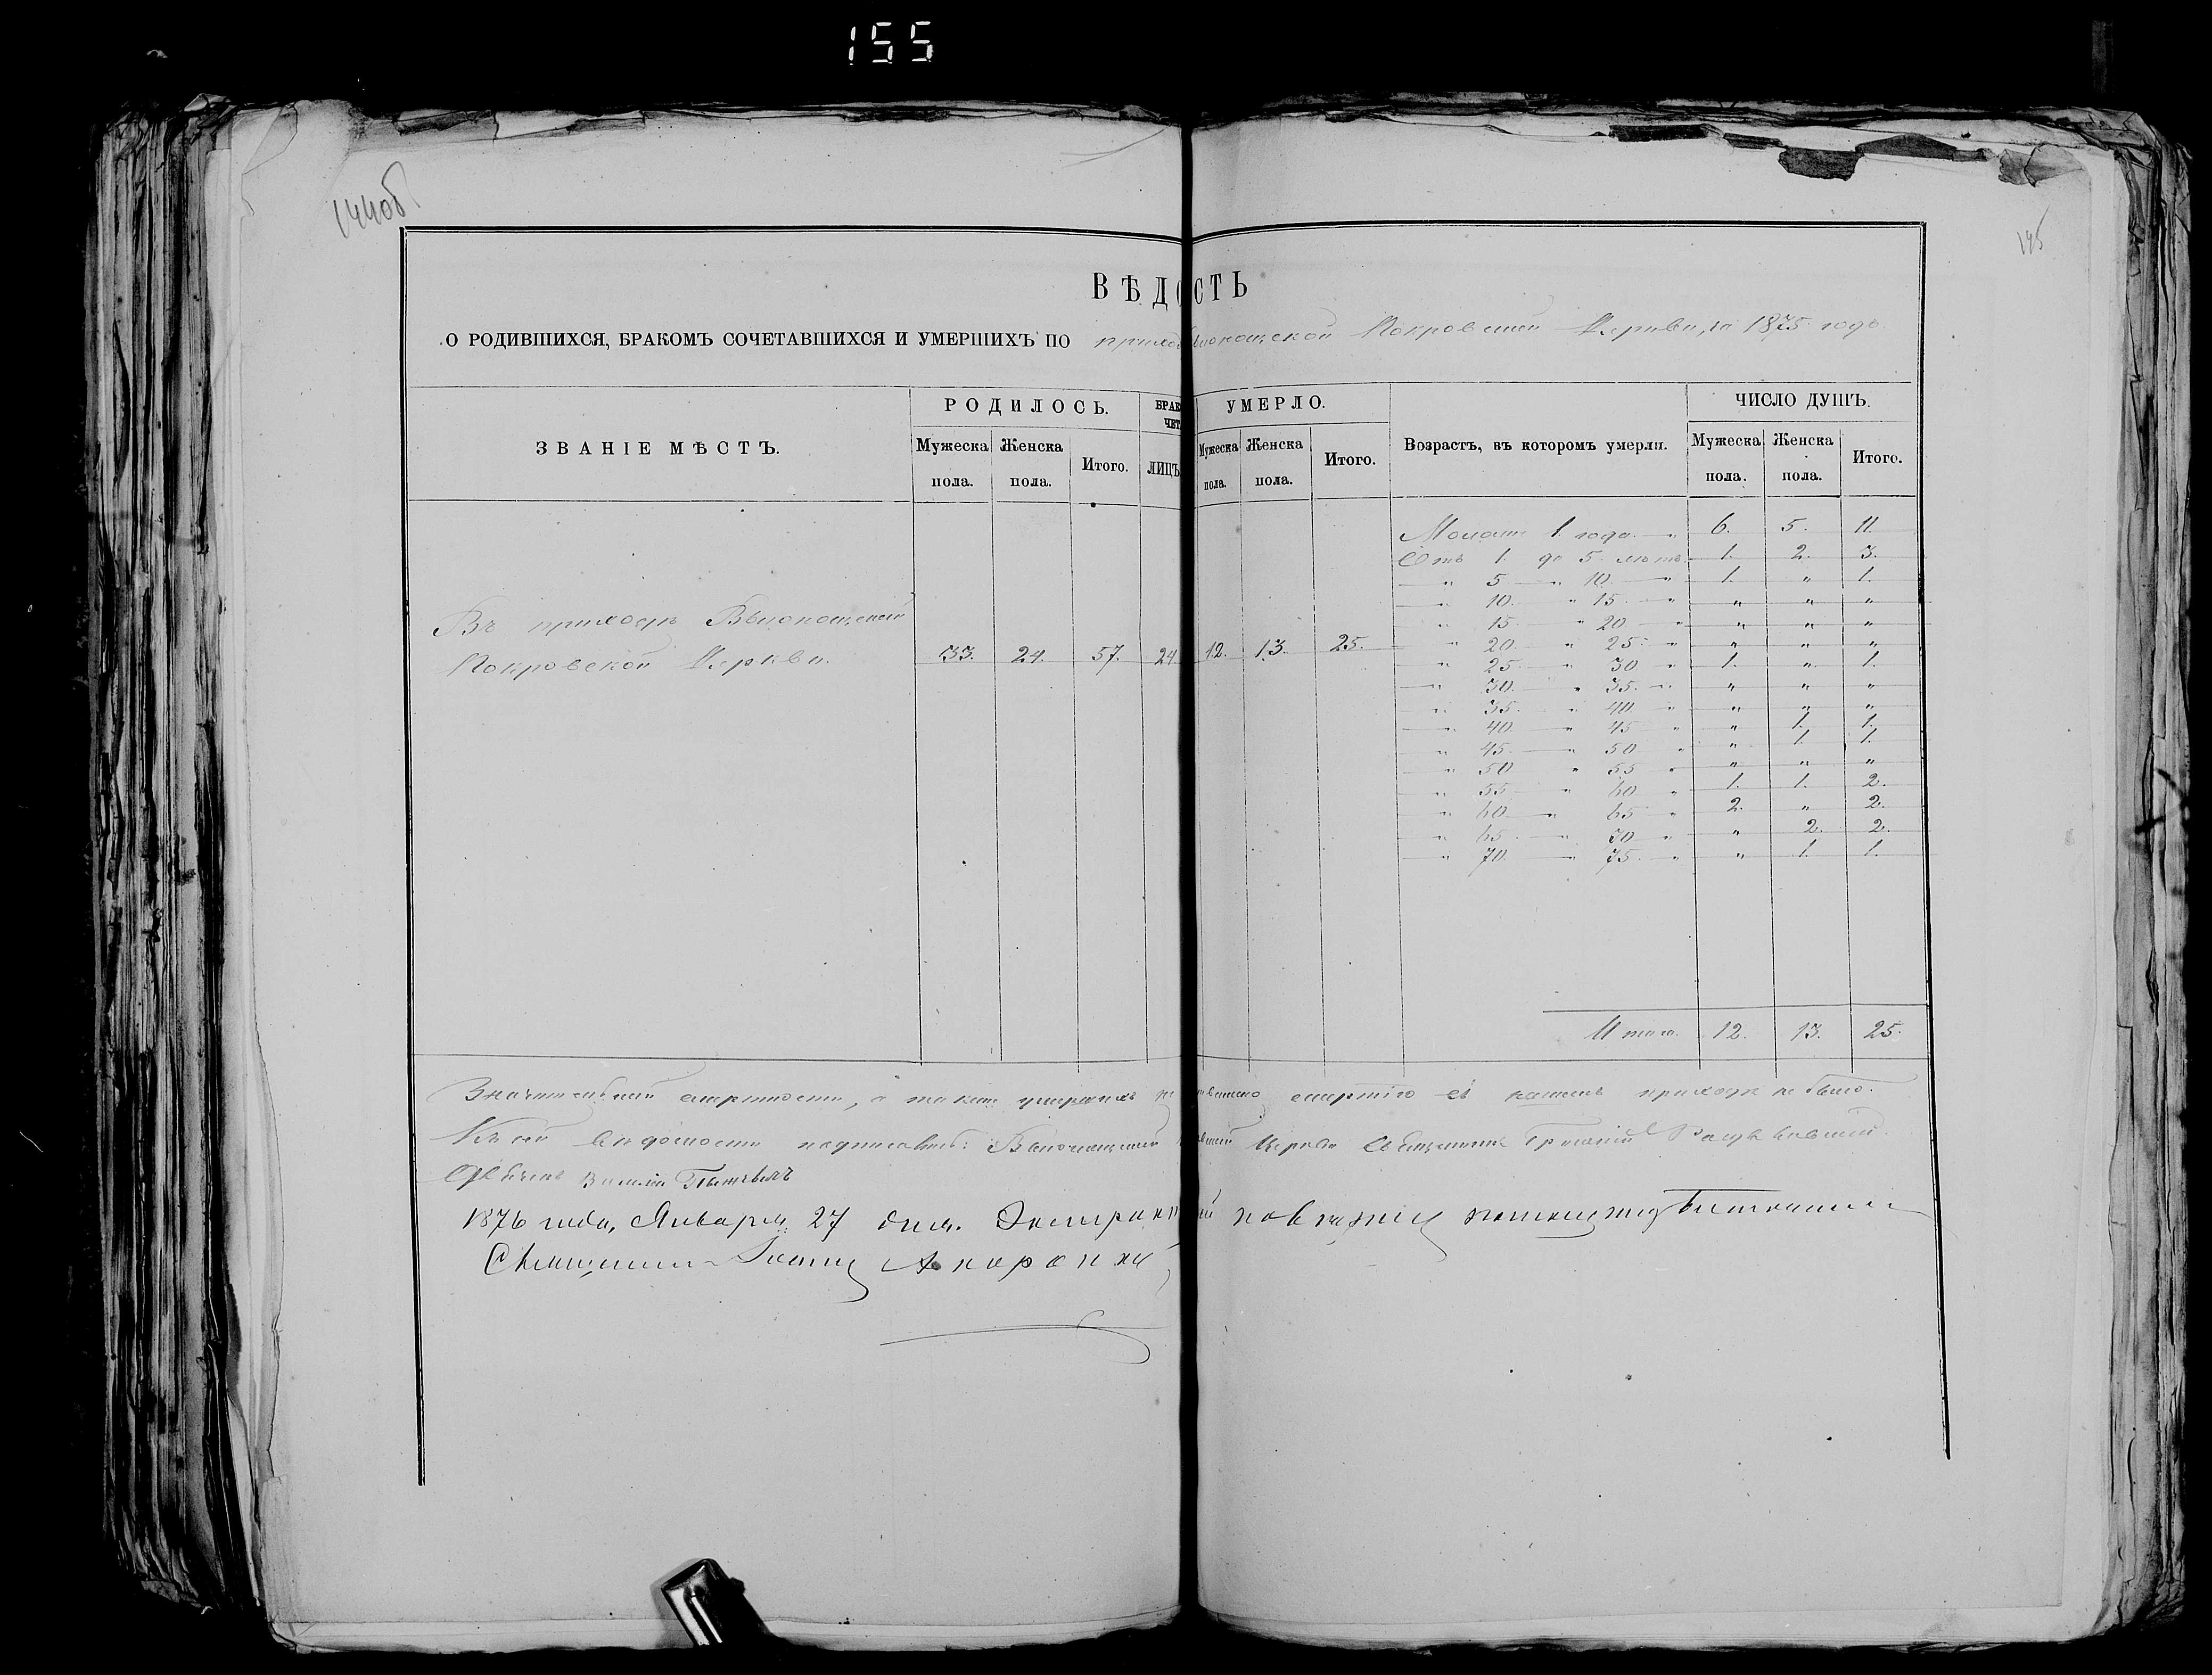 155
144об
145
ВѢДО СТЬ
О РОДИВШИХСЯ, БРАКОМЪ СОЧЕТАВШИХСЯ И УМЕРШИХЪ ПО Покровской Церкви, за 1875 годъ
ЗВАНІЕ МѢСТЪ.
РОДИЛОСЬ.
Мужеска пола.
Женска пола.
Итого.
БРАК
ЧЕТ
ЛИЦЪ
УМЕРЛО.
Мужеска пола.
Женска пола.
Итого.
Возрастъ, въ которомъ умерли.
ЧИСЛО ДУШЪ.
Мужеска пола.
Женска пола.
Итого.
Въ приходѣ
Покровской Церкви. 33. 24. 57. 24. 12. 13. 25.
1 года 6. 5. 11.
Отъ 1. до 5 лѣтъ 1. 2. 3.
" 5 " 10. " 1. " 1.
" 10. " 15 " " " "
" 15. " 20 " " " "
" 20. " 25. " " " "
" 25. " 30 " 1. " 1.
" 30. " 35. " " " "
" 35. " 40. " " " "
" 40. " 45 " " 1. 1.
" 45. " 50 " " 1. 1.
" 50 " 55 " " " "
" 55 " 60 " 1. 1. 2.
" 60 " 65 " 2. " 2.
" 65 " 70 " " 2. 2.
" 70. " 75. " " 1. 1.
Итого. 12. 13. 25.
Значительной смертности, а также умершихъ смертію въ нашемъ приходѣ не было.
Къ сей вѣдомости Церкви Священникъ Григорій
Василій
1876 года, Января 27 дня.
Священникъ